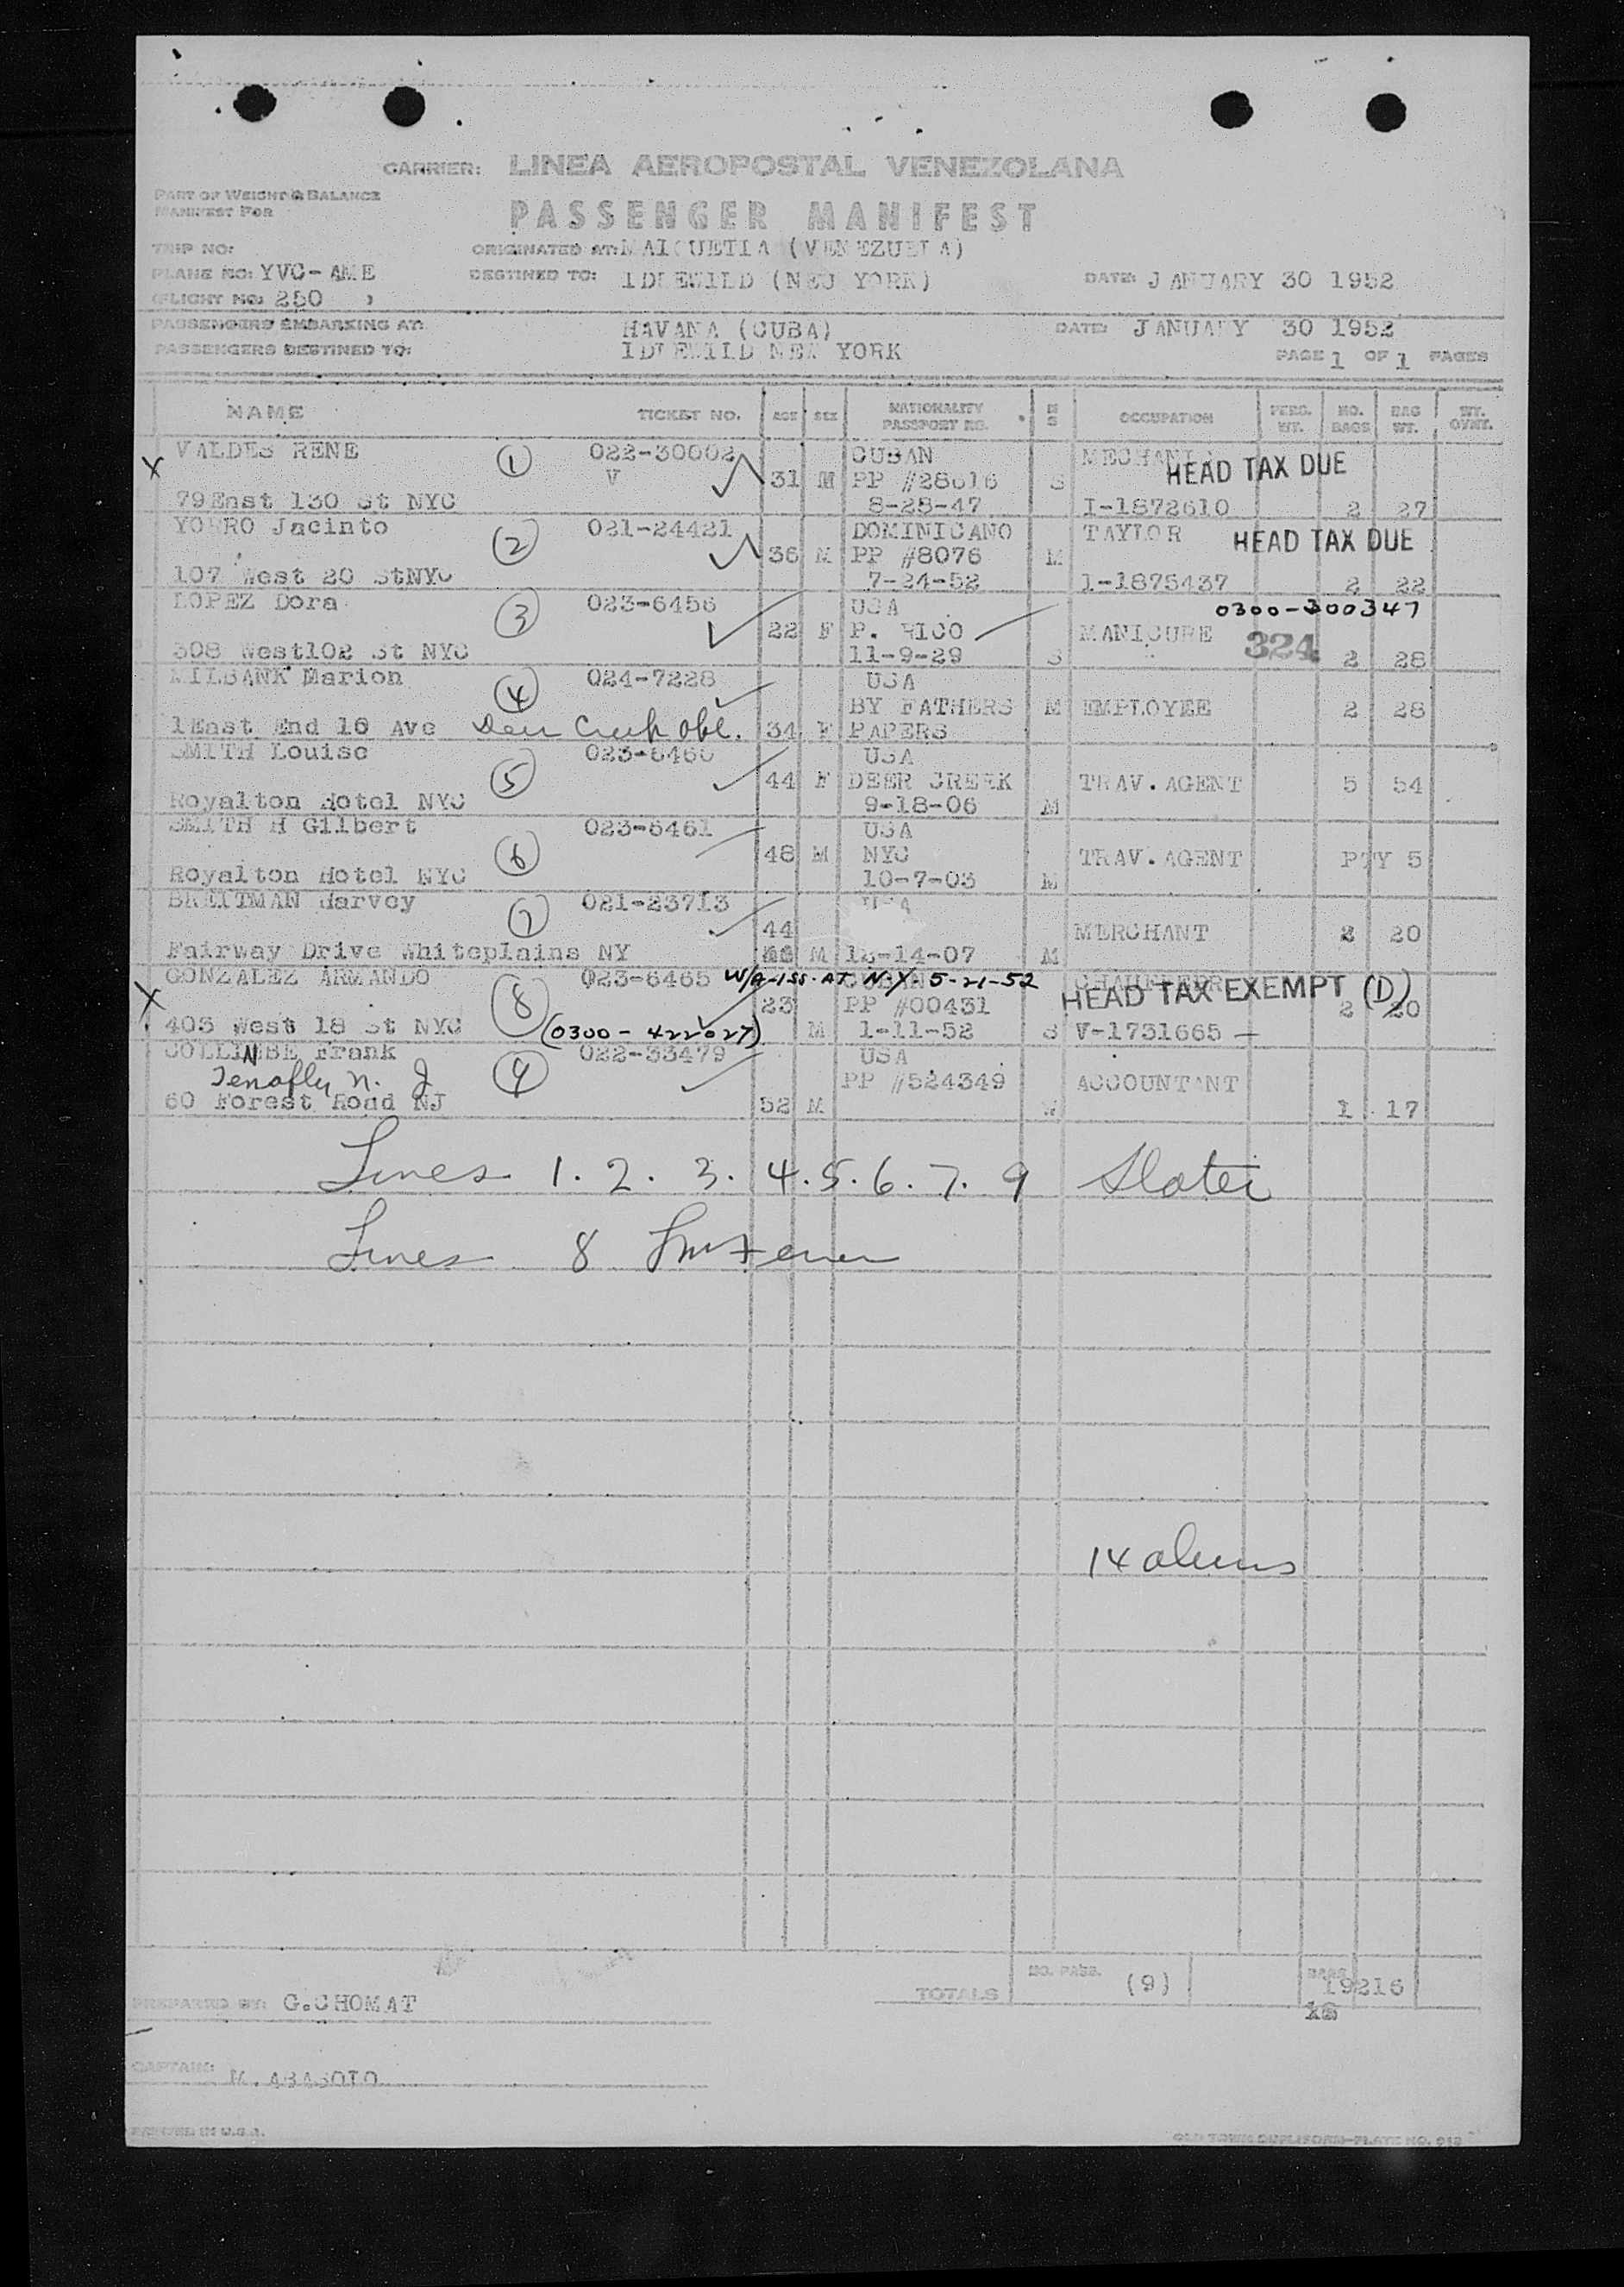 CARRIER: LINEA AEROPOSTAL VENEZOLANA
PART OF WEIGHT & BALANCE
MANIFEST FOR
PASSENGER MANIFEST
TRIP NO: ORIGINATED AT: MAIQUETIA (VENEZUELA)
PLANE NO: YVC-AME DESTINED TO: IDLEWILD (NEW YORK) DATE: JANUARY 30 1952
(FLIGHT NO: 250 )
PASSENGERS EMBARKING AT: HAVANA (CUBA) DATE: JANUARY 30 1952
PASSENGERS DESTINED TO: IDLEWILD NEW YORK PAGE 1 OF 1 PAGES
NAME TICKET NO. AGE SEX NATIONALITY PASSPORT NO. OCCUPATION PERS. WT. NO. BAGS BAG WT. WT. OVWT.
X VALDES RENE 1 022-30002 CUBAN MECHANIC
V 31 M PP #28616 S HEAD TAX DUE
79East 130 St NYC 8-28-47 I-1872610 2 27
YORRO Jacinto 2 021-24421 DOMINICANO TAYLOR HEAD TAX DUE
36 M PP #8076 M
107 West 20 StNYC 7-24-52 1-1875437 2 22
LOPEZ Dora 3 023-6456 USA 0300-300347
22 F P. RICO MANICURE 324
308 West102 St NYC 11-9-29 S 2 28
MILBANK Marion 4 024-7228 USA
BY FATHERS M EMPLOYEE 2 28
1East End 10 Ave Deer Creek Okl. 34 F PAPERS
SMITH Louise 5 023-6460 USA
44 F DEER CREEK TRAV.AGENT 5 54
Royalton Hotel NYC 9-18-06 M
SMITH H Gilbert 6 023-6461 USA
48 M NYC TRAV.AGENT PTY 5
Royalton Hotel NYC 10-7-03 M
BREITMAN Harvey 7 021-23713 USA
44 MERCHANT 2 20
Fairway Drive Whiteplains NY M 12-14-07 M
GONZALEZ ARMANDO 8 023-6465 W/A-ISS. AT N.Y. 5-21-52 CUBAN CHAUFFEUR
X 23 PP #00431 HEAD TAX EXEMPT (D) 2 20
403 West 18 St NYC (0300-422027) M 1-11-52 S V-1731665
Frank 9 022-33479 USA
Tenafly N. J PP #524349 ACCOUNTANT
60 Forest Road NJ 52 M 1 17
Lines 1. 2. 3. 4. 5. 6. 7. 9 Slater
Lines 8
14 aliens
TOTALS NO. PASS. (9) BAGS 19216
PREPARED BY: G.CHOMAT
CAPTAIN: M. ABASOLO
PRINTED IN U.S.A. OLD TOWN DUPLIFORM-PLATE NO.